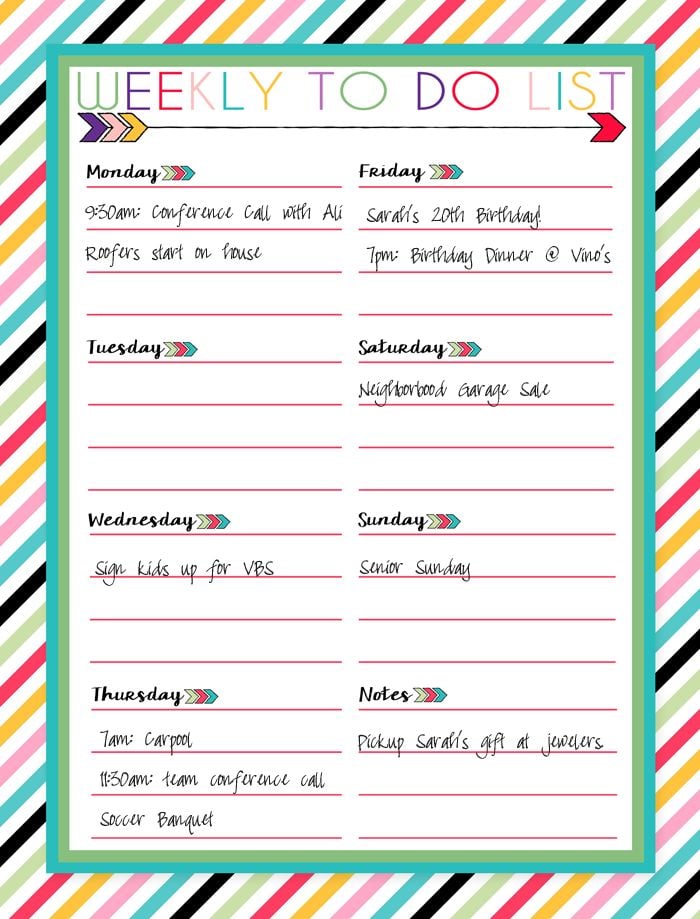 WEEKLY TO DO LIST
Monday
9:30am: Conference Call with Ali
Roofers start on house
Tuesday
Wednesday
Sign kids up for VBS
Thursday
7am: Carpool
11:30am: team conference call
Soccer Banquet
Friday
Sarah's 20th Birthday!
7pm: Birthday Dinner @ Vino's
Saturday
Neighborbood Garage Sale
Sunday
Senior Sunday
Notes
Pickup Sarah's gift at jewelers